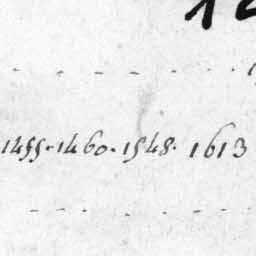 1455. 1460. 1548. 1613